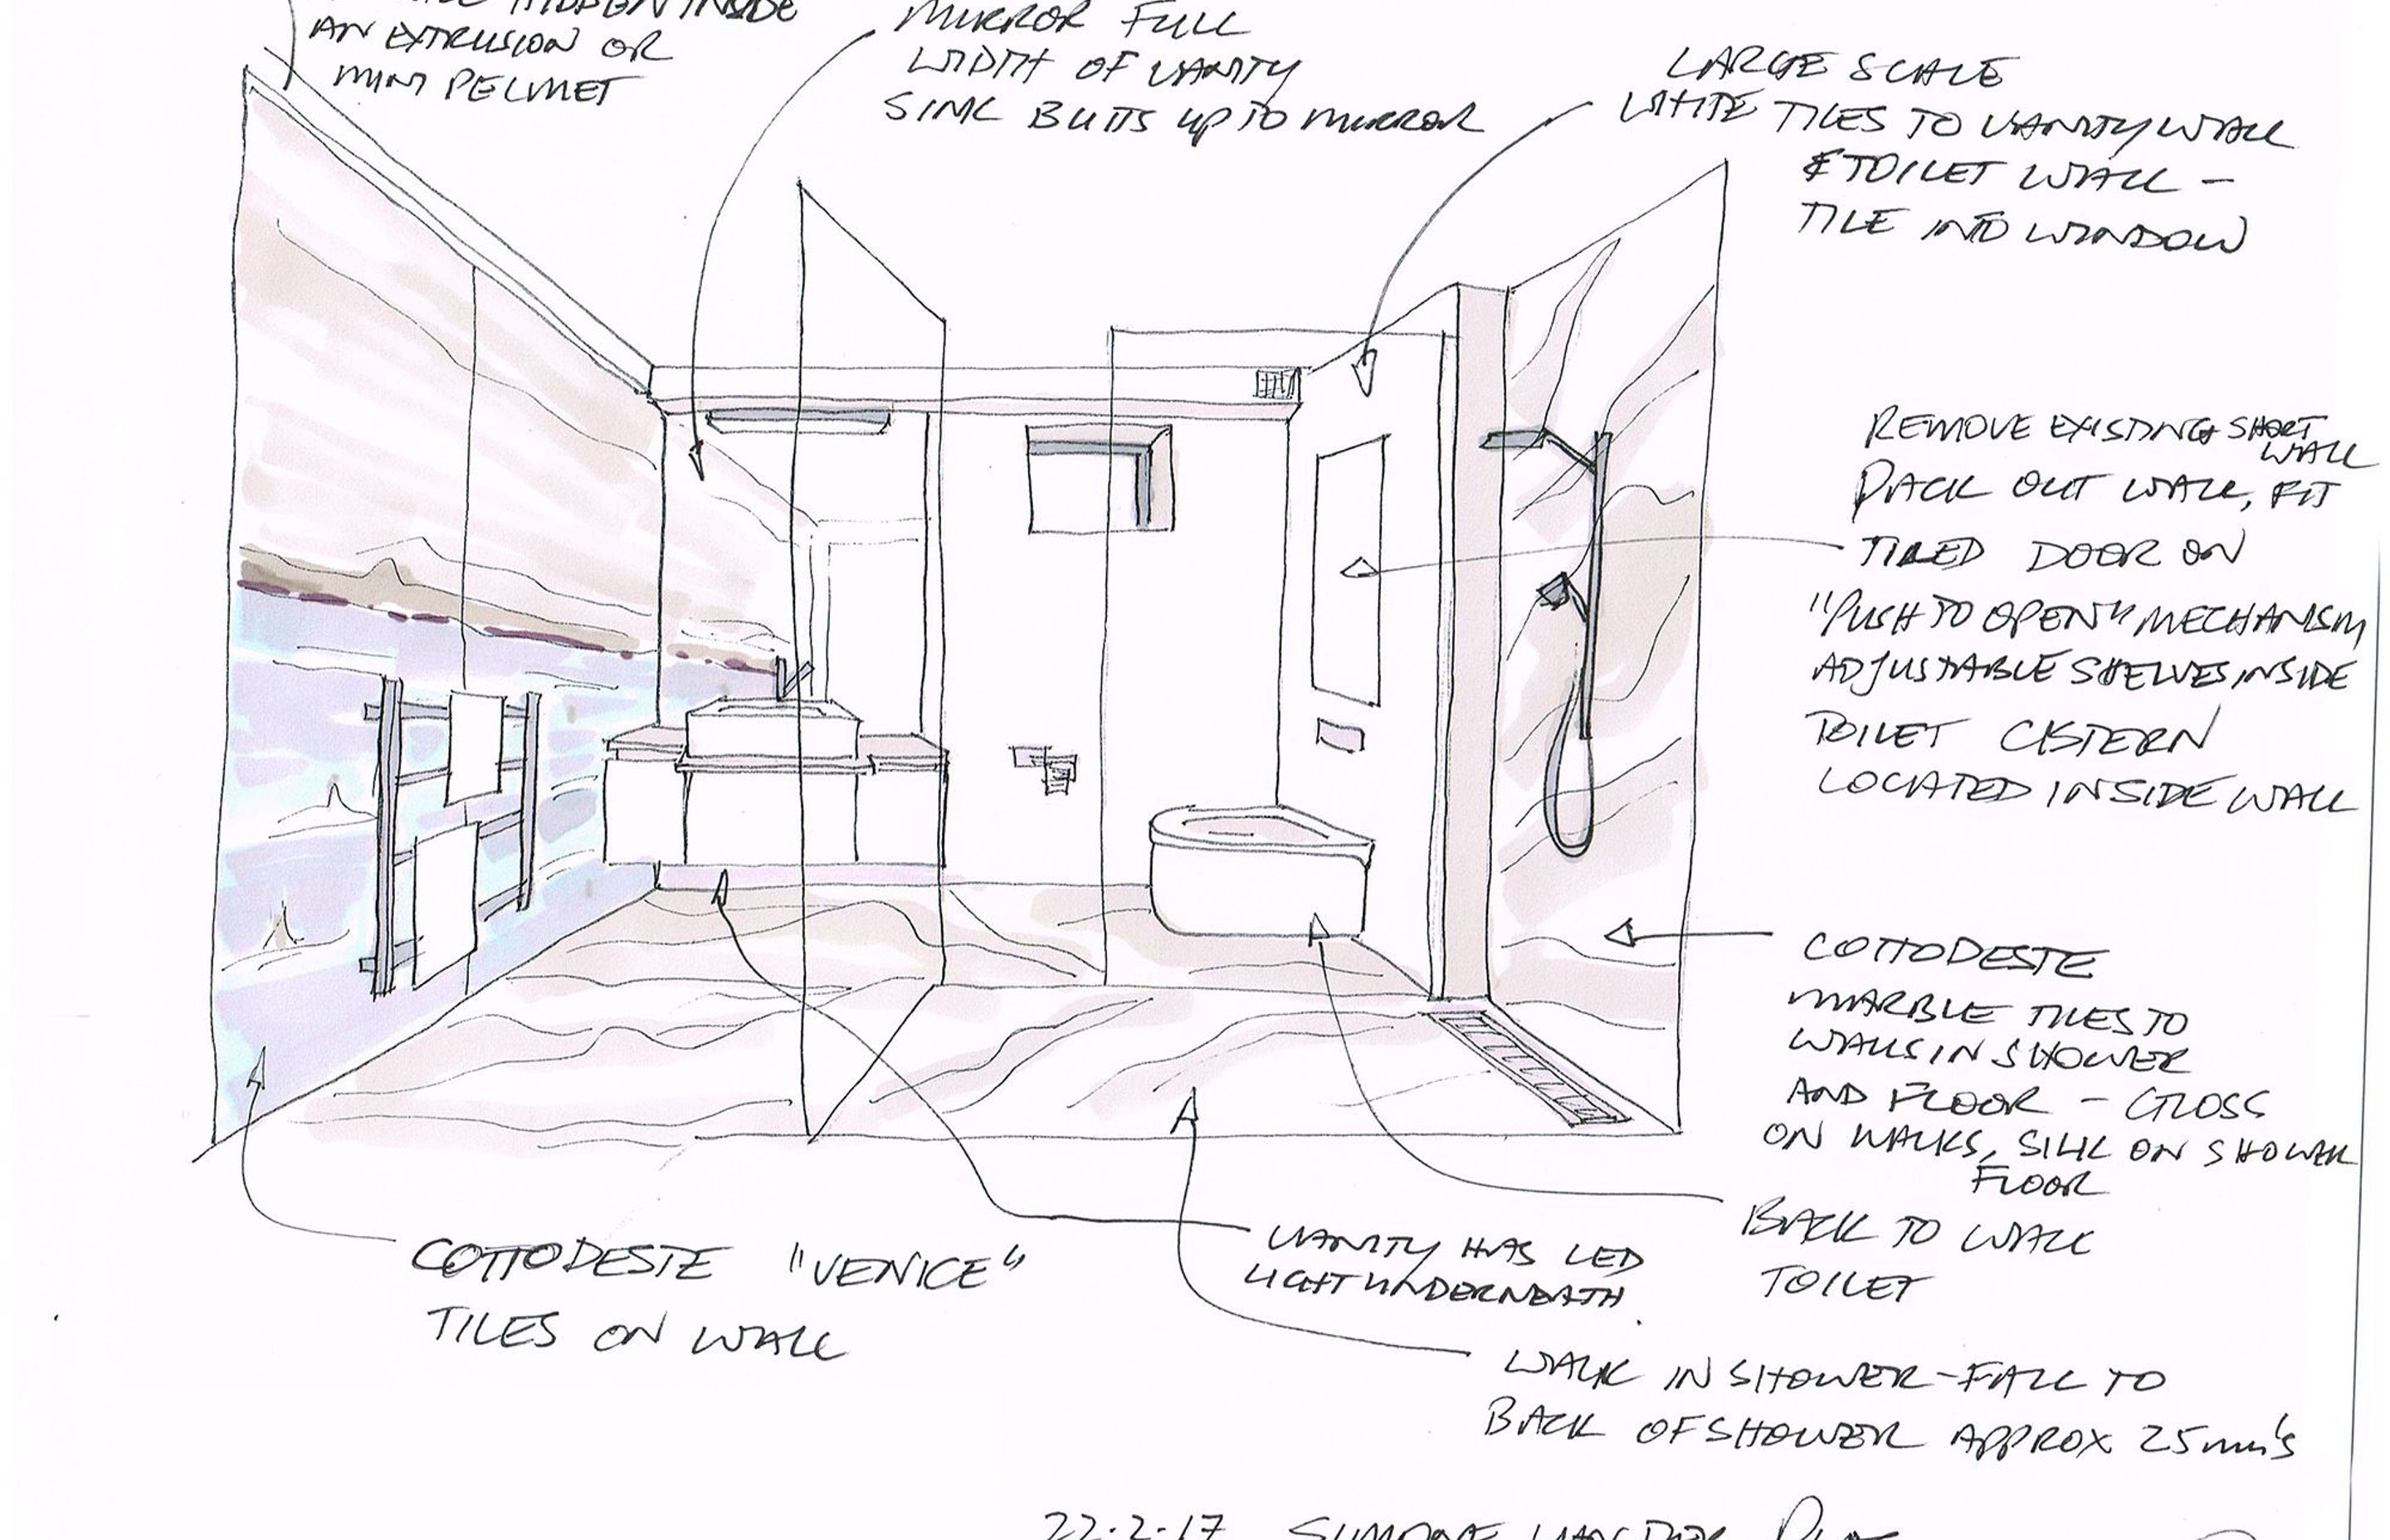 HIDDEN INSIDE
AN EXTRUSION OR
MINI PELMET
MIRROR FULL
WIDTH OF VANITY
SINK BUTTS UP TO MIRROR
LARGE SCALE
WHITE TILES TO VANITY WALL
& TOILET WALL -
TILE INTO WINDOW
REMOVE EXISTING SHORT
WALL
PACK OUT WALL, FIT
TILED DOOR ON
"PUSH TO OPEN" MECHANISM
ADJUSTABLE SHELVES INSIDE
TOILET CISTERN
LOCATED INSIDE WALL
COTTODESTE
MARBLE TILES TO
WALLS IN SHOWER
AND FLOOR - GLOSS
ON WALLS, SILK ON SHOWER
FLOOR
BACK TO WALL
TOILET
VANITY HAS LED
LIGHT UNDERNEATH
COTTODESTE "VENICE"
TILES ON WALL
WALK IN SHOWER - FALL TO
BACK OF SHOWER APPROX 25mm's
22.2.17